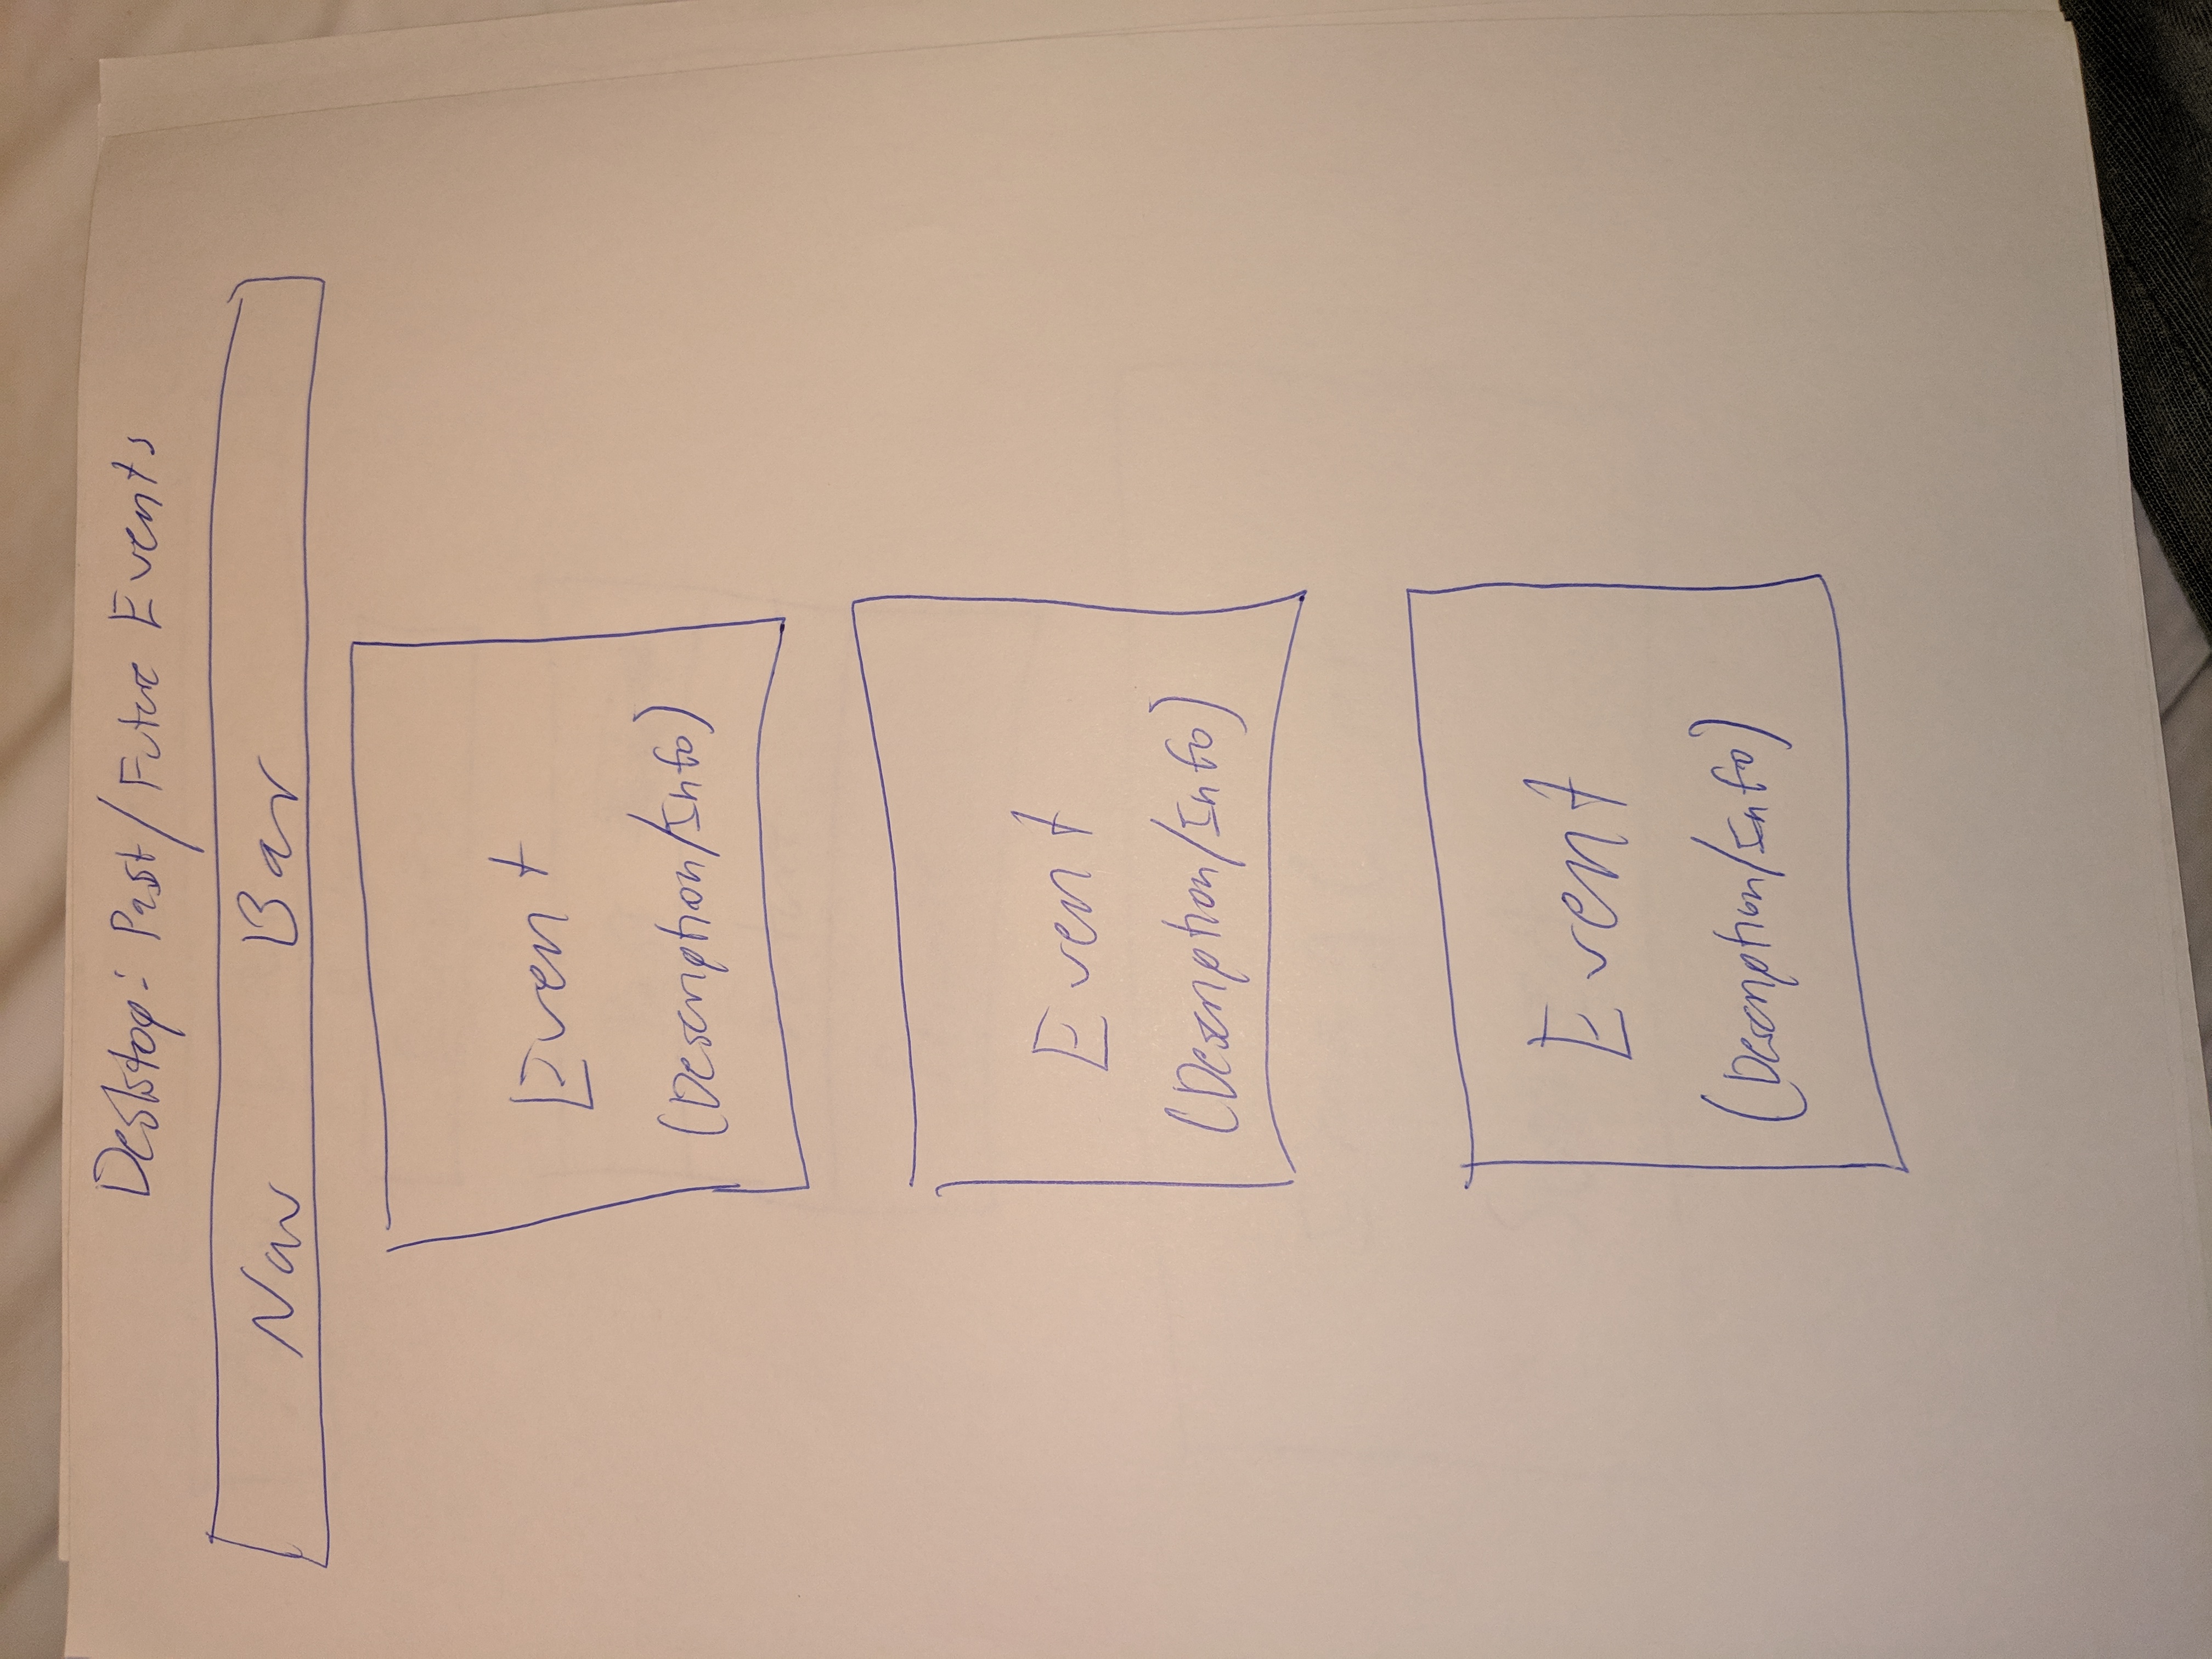 Desktop: Past/Future Events
Nav Bar
Event
(Description/Info)
Event
(Description/Info)
Event
(Description/Info)